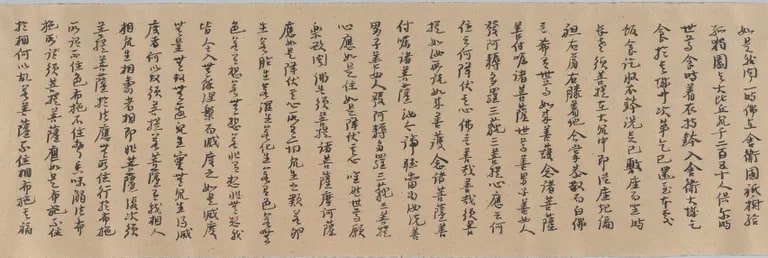 如是我聞一時佛在舍衛國祇樹給
孤獨園与大比丘众千二百五十人俱尒時
世尊食時着衣持鉢入舍衛大城乞
食於其城中次第乞已還至本處
飯食訖收衣鉢洗足已敷座而坐時
長老須菩提在大众中即從座起偏
袒右肩右膝着地合掌恭敬而白佛
言希有世尊如來善護念諸菩薩
善付嘱諸菩薩世尊善男子善女人
發阿耨多羅三藐三菩提心應云何
住云何降伏其心佛言善哉善哉須菩
提如汝所說如來善護念諸菩薩善
付嘱諸菩薩汝今諦聽當為汝說善
男子善女人發阿耨多羅三藐三菩提
心應如是住如是降伏其心唯然世尊願
樂欲聞佛告須菩提諸菩薩摩訶薩
應如是降伏其心所有一切众生之類若卵
生若胎生若濕生若化生若有色若无
色若有想若无想若非有想非无想我
皆令入无餘涅槃而滅度之如是滅度
无量无数无邊众生實无众生得滅
度者何以故須菩提若菩薩有我相人
相众生相壽者相即非菩薩復次須
菩提菩薩於法應无所住行於布施
所謂不住色布施不住聲香味觸法布
施須菩提菩薩應如是布施不住
於相何以故若菩薩不住相布施其福